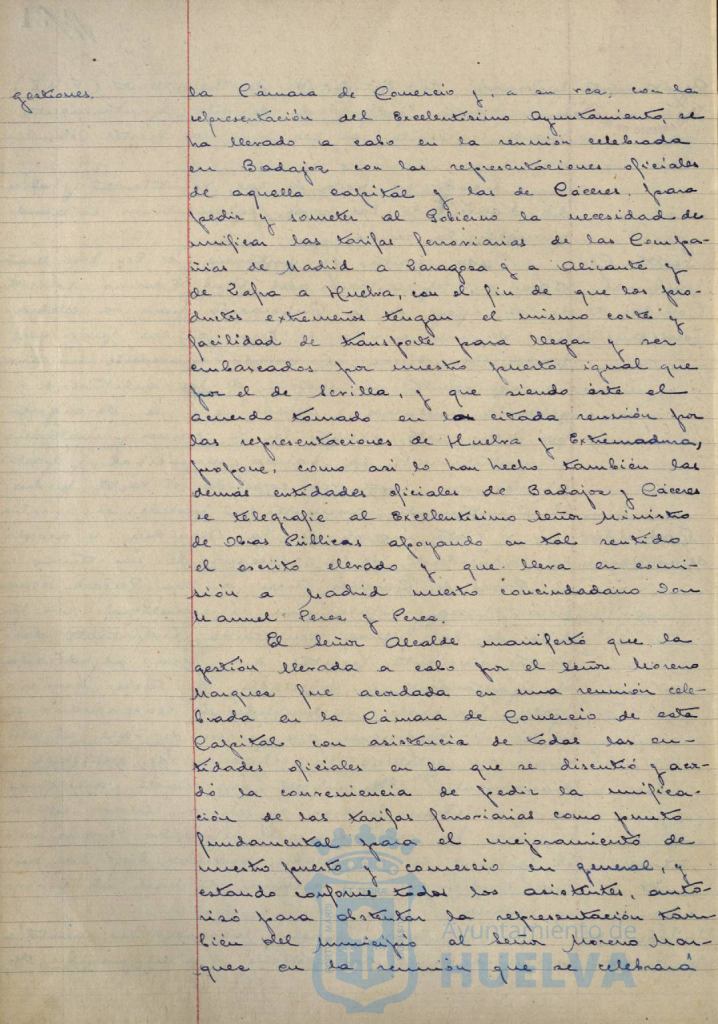 gestiones.
la Cámara de Comercio y, a su vez, con la
representación del Excelentísimo Ayuntamiento, se
ha llevado a cabo en la reunión celebrada
en Badajoz con las representaciones oficiales
de aquella capital y las de Cáceres, para
pedir y someter al Gobierno la necesidad de
unificar las tarifas ferroviarias de las Compa-
ñias de Madrid a Zaragoza y a Alicante y
de Zafra a Huelva, con el fin de que los pro-
ductos extremeños tengan el mismo coste y
facilidad de transporte para llegar y ser
embarcados por nuestro puerto igual que
por el de Sevilla, y que siendo éste el
acuerdo tomado en la citada reunión por
las representaciones de Huelva y Extremadura,
propone, como asi lo han hecho también las
demás entidades oficiales de Badajoz y Cáceres
se telegrafie al Excelentísimo Señor Ministro
de Obras Públicas apoyando en tal sentido
el escrito elevado y que lleva en comi-
sión a Madrid nuestro conciudadano Don
Manuel Perez y Perez.
El Señor Alcalde manifestó que la
gestión llevada a cabo por el Señor Moreno
Marquez fue acordada en una reunión cele-
brada en la Cámara de Comercio de esta
Capital con asistencia de todas las en-
tidades oficiales en la que se discutió y acor-
dó la conveniencia de pedir la unifica-
ción de las tarifas ferroviarias como punto
fundamental para el mejoramiento de
nuestro puerto y comercio en general, y
estando conforme todos los asistentes, auto-
rizó para obstentar la representación tam-
bién del Municipio al Señor Moreno Mar-
quez en la reunión que se celebrará
Ayuntamiento de
HUELVA